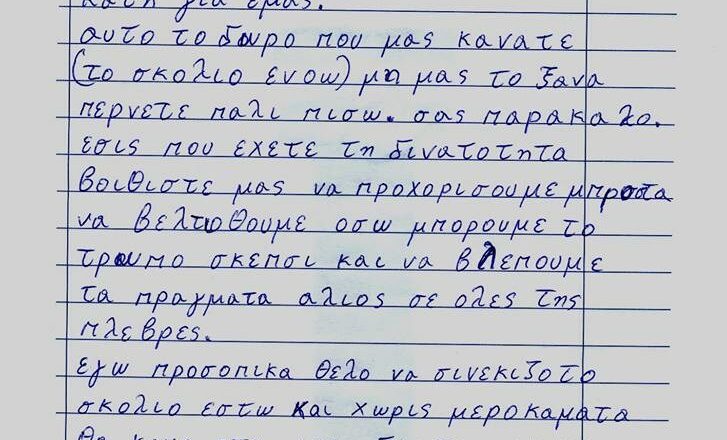 κατη για εμας.
αυτο το δωρο που μας κανατε
(το σκολιο ενοω) μη μας το ξανα
περνετε παλι πισω. σας παρακαλο.
εσις που εχετε τη δινατοτητα
βοιθιστε μας να προχορισουμε μπροστα
να βελτιοθουμε οσω μπορουμε το
τρωπο σκεπσι και να βλεπουμε
τα πραγματα αλιος σε ολες της
πλεβρες.
εγω προσοπικα θελο να σινεκιζοτο
σκολιο εστω και χωρις μεροκαματα